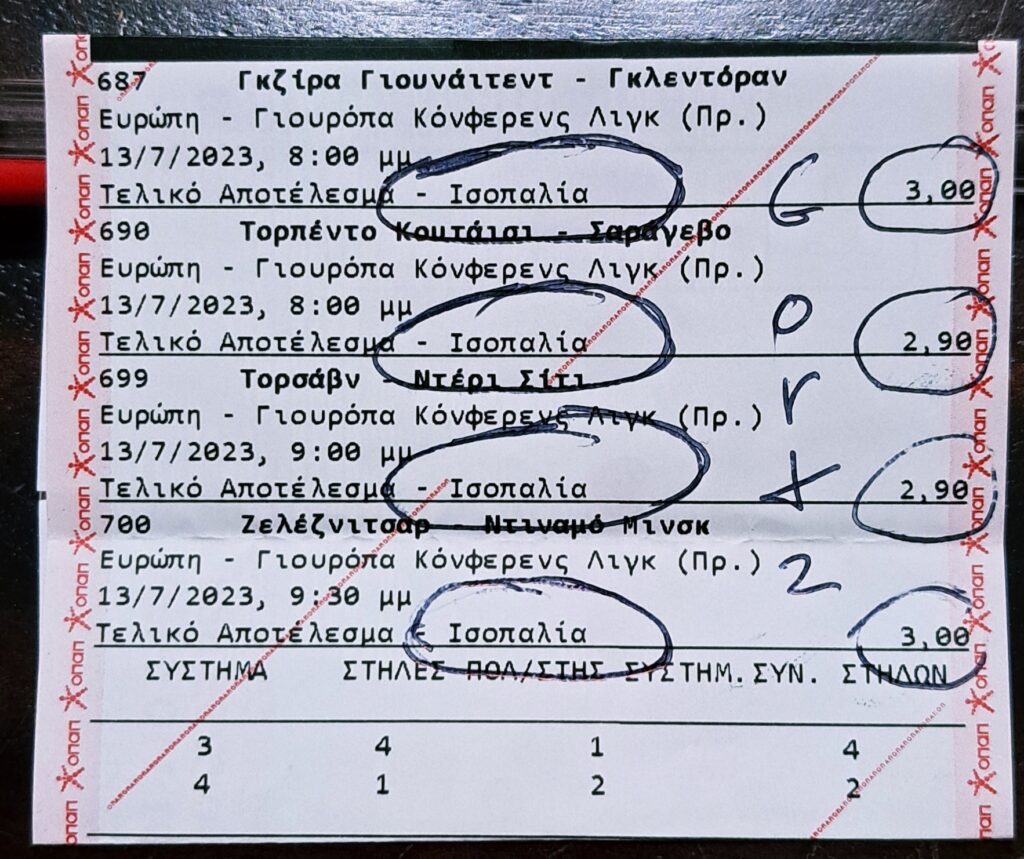 687 Γκζίρα Γιουνάιτεντ - Γκλεντόραν
Ευρώπη - Γιουρόπα Κόνφερενς Λιγκ (Πρ.)
13/7/2023, 8:00 μμ
Τελικό Αποτέλεσμα - Ισοπαλία G 3,00
690 Τορπέντο Κουτάισι - Σαράγεβο
Ευρώπη - Γιουρόπα Κόνφερενς Λιγκ (Πρ.)
13/7/2023, 8:00 μμ o
Τελικό Αποτέλεσμα - Ισοπαλία 2,90
699 Τορσάβν - Ντέρι Σίτι r
Ευρώπη - Γιουρόπα Κόνφερενς Λιγκ (Πρ.)
13/7/2023, 9:00 μμ
Τελικό Αποτέλεσμα - Ισοπαλία 2,90
700 Ζελέζνιτσαρ - Ντιναμό Μινσκ
Ευρώπη - Γιουρόπα Κόνφερενς Λιγκ (Πρ.) 2
13/7/2023, 9:30 μμ
Τελικό Αποτέλεσμα - Ισοπαλία 3,00
ΣΥΣΤΗΜΑ ΣΤΗΛΕΣ ΠΟΛ/ΣΤΗΣ ΣΥΣΤΗΜ. ΣΥΝ. ΣΤΗΛΩΝ
3 4 1 4
4 1 2 2
οπαπ